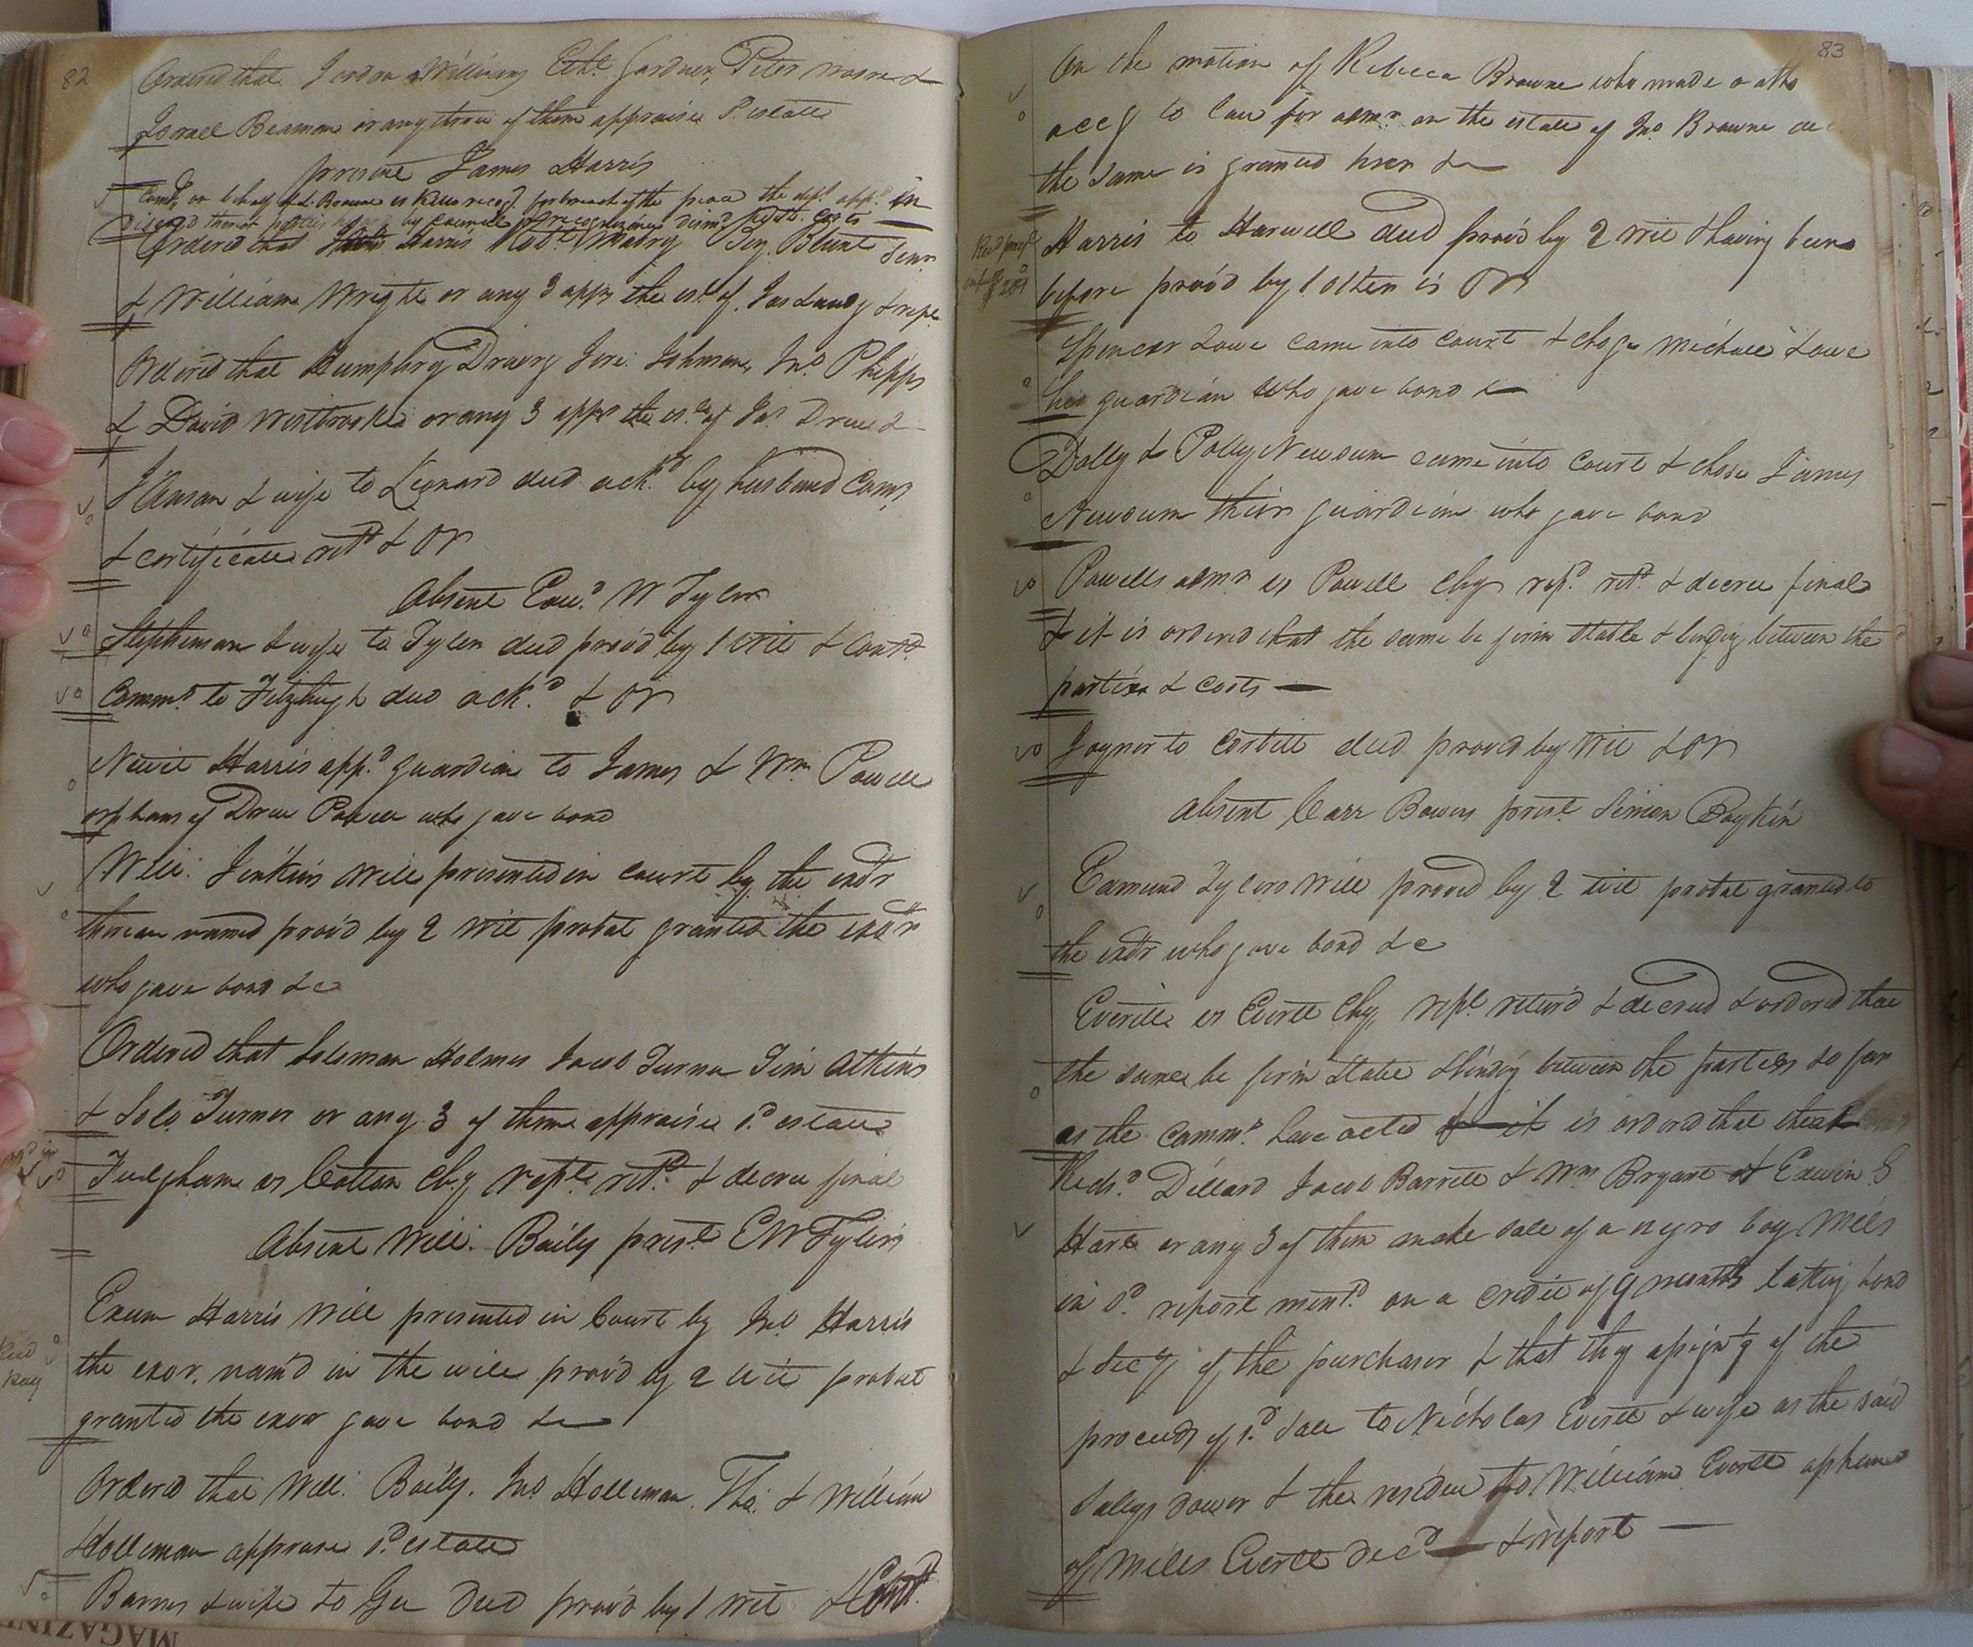 82
Ordered that Jordan Williams Ethd. Gardner, Peter &
Israel Beaman or any three of them appraise sd. estate
present James Harris
Comth. on behalf of Browne vs recog. for breach of the peace the deft. appd. in
discharged thereof by council recognizance dismd. costs
Ordered that Harris Robt. Mabry Benj. Blunt Senr
& William Wright or any 3 appr the est. of Jas Lundy & repo
Ordered that Humphrey Drewry Jere. Johnson, Jno. Phipps
& David Westbrooke or any 3 appr the este. of Jas Drew &
& wife to Leonard deed ackd. by husband Comn
& certificate retd & OR
Absent Edwd. W Tyler
Stephenson & wife to Tyler deed prov'd by 1 wit & Contd.
Commrs. to Fitzhugh deed ackd. & OR
Newit Harris appd. guardian to James & Wm Powell
orphans of Drew Powell who gave bond
Will: Jenkins Will presented in court by the exor
therein named prov'd by 2 wit probat granted the exor
who gave bond &c
Ordered that Soloman Holmes Jacob Turner Jim Atkins
& Solo Turner or any 3 of them appraise sd. estate
Fulgham vs Cotton Chy repts. retd. & decree final
Absent Will: Baily prest. E W Tyler
Exum Harris Will presented in Court by Jno. Harris
the exor. nam'd in the will prov'd by 2 wit probat
granted the exor gave bond &c
Ordered that Will: Baily, Jno Holleman, Tho: & William
Holleman appraise sd. estate
Barnes & wife to Gee Deed prov'd by 1 wit & Contd.
83
On the motion of Rebecca Browne who made oath
accg to law for admr on the estate of Jno Browne dec
the same is granted her &c
Harris to Harwell deed prov'd by 2 wit & having been
before prov'd by 1 other is OR
Spencer Lowe came into court & chose Michael Lowe
his guardian who gave bond &c
Dolly & Polly Newsum came into court & chose James
Newsum their guardian who gave bond
Powells admr vs Powell chy repd. retd. & decree final
& it is ordered that the same be firm stable & bindg between the
parties & costs
Joyner to Corbitt deed proved by wit & OR
Absent Carr Bowers prest. Simon Boykin
Edmund Tylers Will proved by 2 wit probat granted to
the exor who gave bond &c
Everitt vs Everett Chy, rept. return'd & decreed & ordered that
the same be firm stable & bindg between the parties so far
as the commrs. have acted & it is ordered that
Dillard Jacob Barrett & Wm Bryant & Edwin S
Hart or any 3 of them make sale of a negro boy Miles
in sd. report mentd. on a credit of 9 months taking bond
& secy of the purchaser & that they of the
proceeds of sd. sale to Nicholas Everett & wife as the said
Sallys dower & the residue to William Everett orphan
of Miles Everett decd & report
MAGAZIN